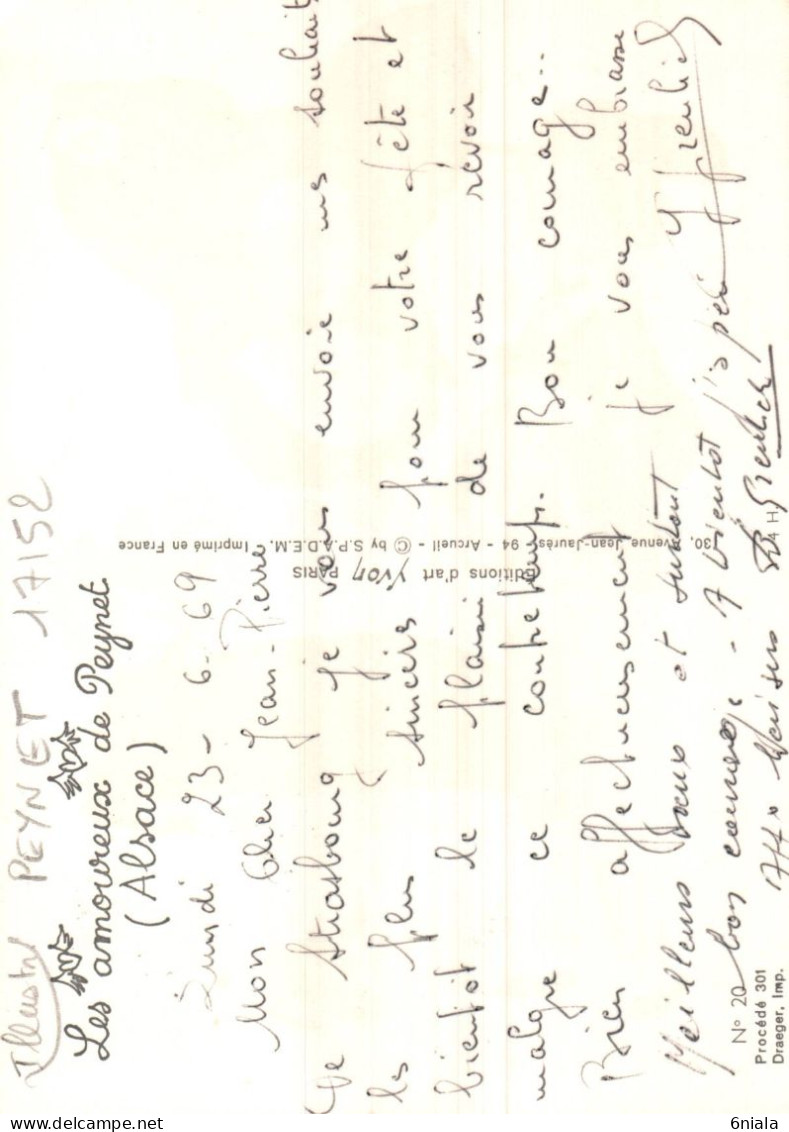 Illustr PEYNET 17152
Les amoureux de Peynet
(Alsace)
Lundi 23-6-69
Mon cher Jean-Pierre
De Strasbourg je vous envoie mes souhaits
les plus sincères pour votre fête et
bientôt le plaisir de vous revoir
malgré ce contretemps. Bon courage..
Bien affectueusement je vous embrasse
Meilleurs vœux et surtout
bon courage. A bientôt j'espère
Editions d'art YVON PARIS
30, Avenue Jean-Jaurès, 94 - Arcueil - © by S.P.A.D.E.M. Imprimé en France
N° 20
Procédé 301
Draeger, Imp.
delcampe.net
6niala